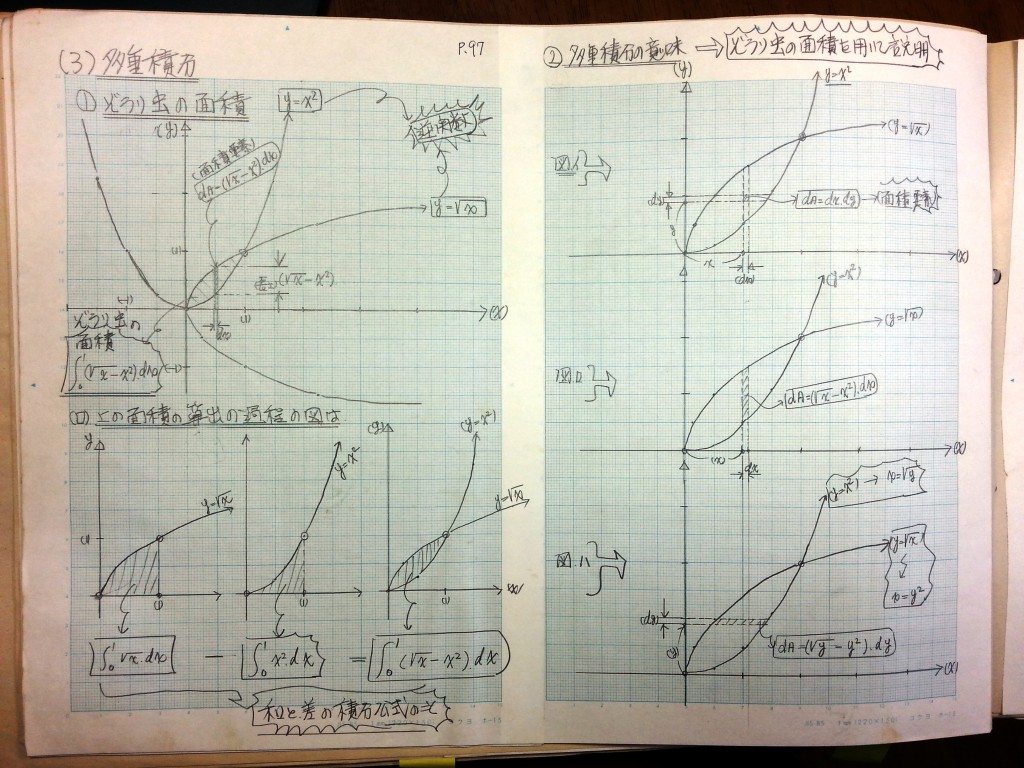 P.97
(3) 多重積分
① どうり虫の面積
y=x²
逆関数
(y)
(面積要素)
dA=(√x-x²)dx
y=√x
(1)
(高さ)(√x-x²)
(-1)
(1)
(x)
dx
どうり虫の
面積
∫₀¹(√x-x²).dx
(-1)
(ロ) この面積の算出の過程の図は
y
y=√x
(1)
(1)
y=x²
(1)
(y)
(y=x²)
y=√x
(1)
(x)
∫₀¹√x.dx - ∫₀¹x²dx = ∫₀¹(√x-x²).dx
和と差の積分公式
② 多重積分の意味 ⇒ どうり虫の面積を用いて説明
(y)
y=x²
(y=√x)
図.イ
(dy)
dA=dx.dy → 面積要素
y
x
(dx)
(x)
(y=x²)
(y=√x)
図.ロ
dA=(√x-x²).dx
(x)
dx
(x)
(y=x²) → x=√y
図.ハ
y=√x
x=y²
(dy)
(y)
dA=(√y-y²).dy
(x)